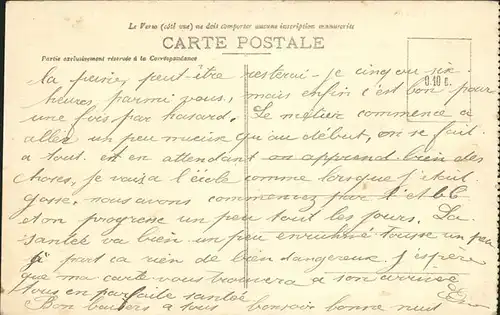 Le Verso (côté vue) ne doit comporter aucune inscription manuscrite
CARTE POSTALE
Partie exclusivement réservée à la Correspondance
0.10 c.
peut-être resterai-je cinq ou six
heures, parmi vous, mais enfin c'est bon pour
une fois par hasard. Le métier commence à
aller un peu mieux qu'au début, on se fait
a tout. et en attendant on apprend bien des
choses, je vais a l'école comme lorsque j'étais
gosse. nous avons commencé par l'A b c
et on progresse un peu tout les jours. La
santée va bien un peu enrhumé tousse un peu
à part ca rien de bien dangereux. J'espère
que ma carte vous trouvera a son arrivée
tous en parfaite santée
Bon baisers a tous bonsoir bonne nuit